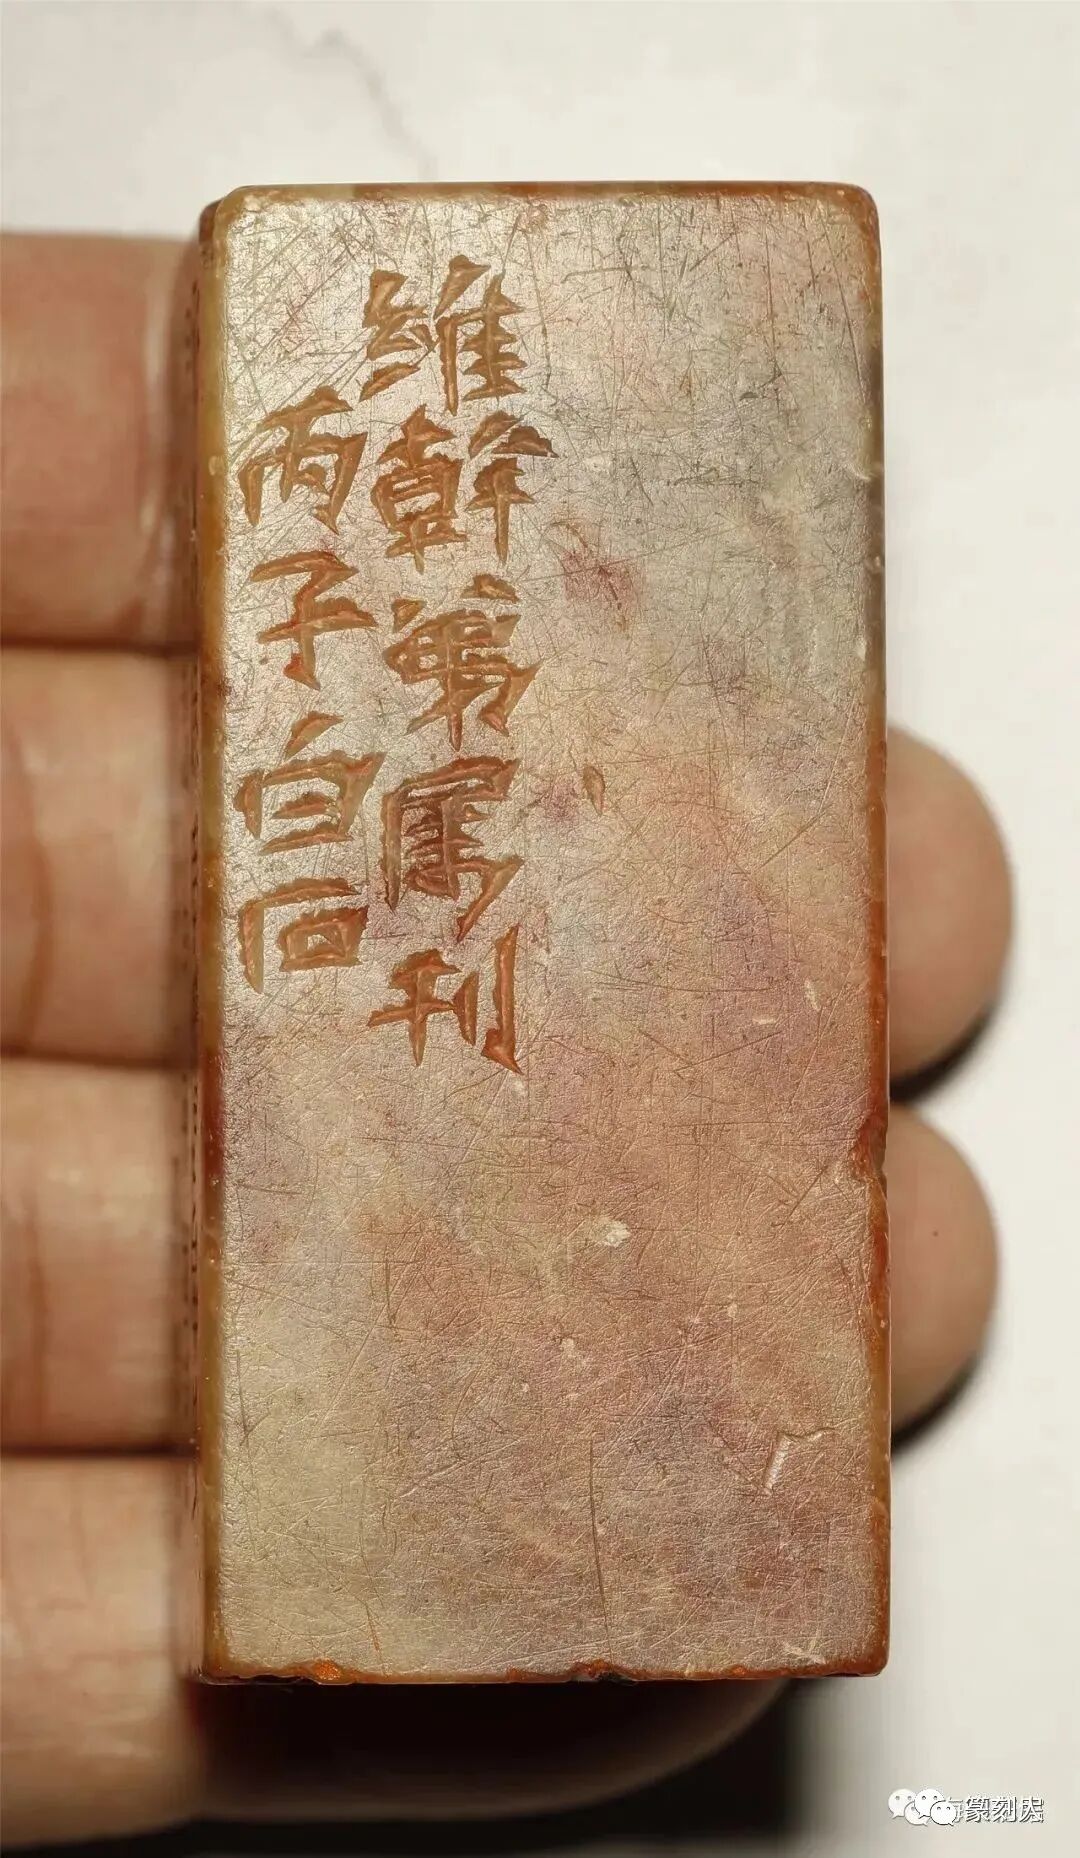 維幹弟屬刊
丙子白石
篆刻